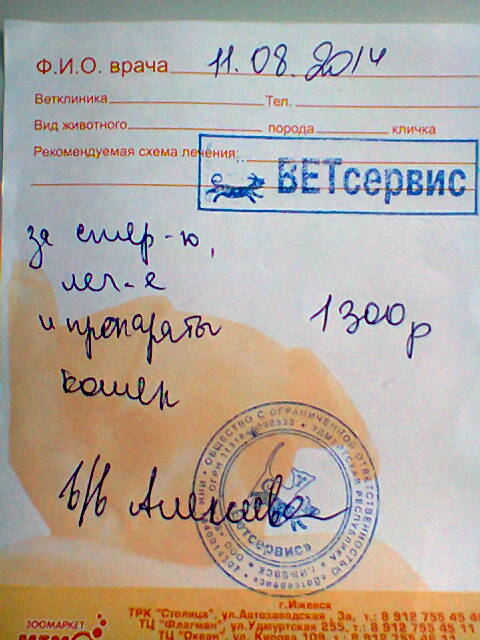 Ф.И.О. врача 11.08.2014
Ветклиника Тел.
Вид животного порода кличка
Рекомендуемая схема лечения:
ВЕТсервис
за стер-ю,
леч-е
и препараты
кошек
1300р
в/в
ОБЩЕСТВО С ОГРАНИЧЕННОЙ ОТВЕТСТВЕННОСТЬЮ
УДМУРТСКАЯ РЕСПУБЛИКА
г.Ижевск
ЗООМАРКЕТ
ТРК "Столица", ул.Автозаводская, 3а, т.: 8 912 755 45 4
ТЦ "Флагман", ул.Удмуртская 255, т.: 8 912 755 45 11
ТЦ "Океан", ул. Кирова 10